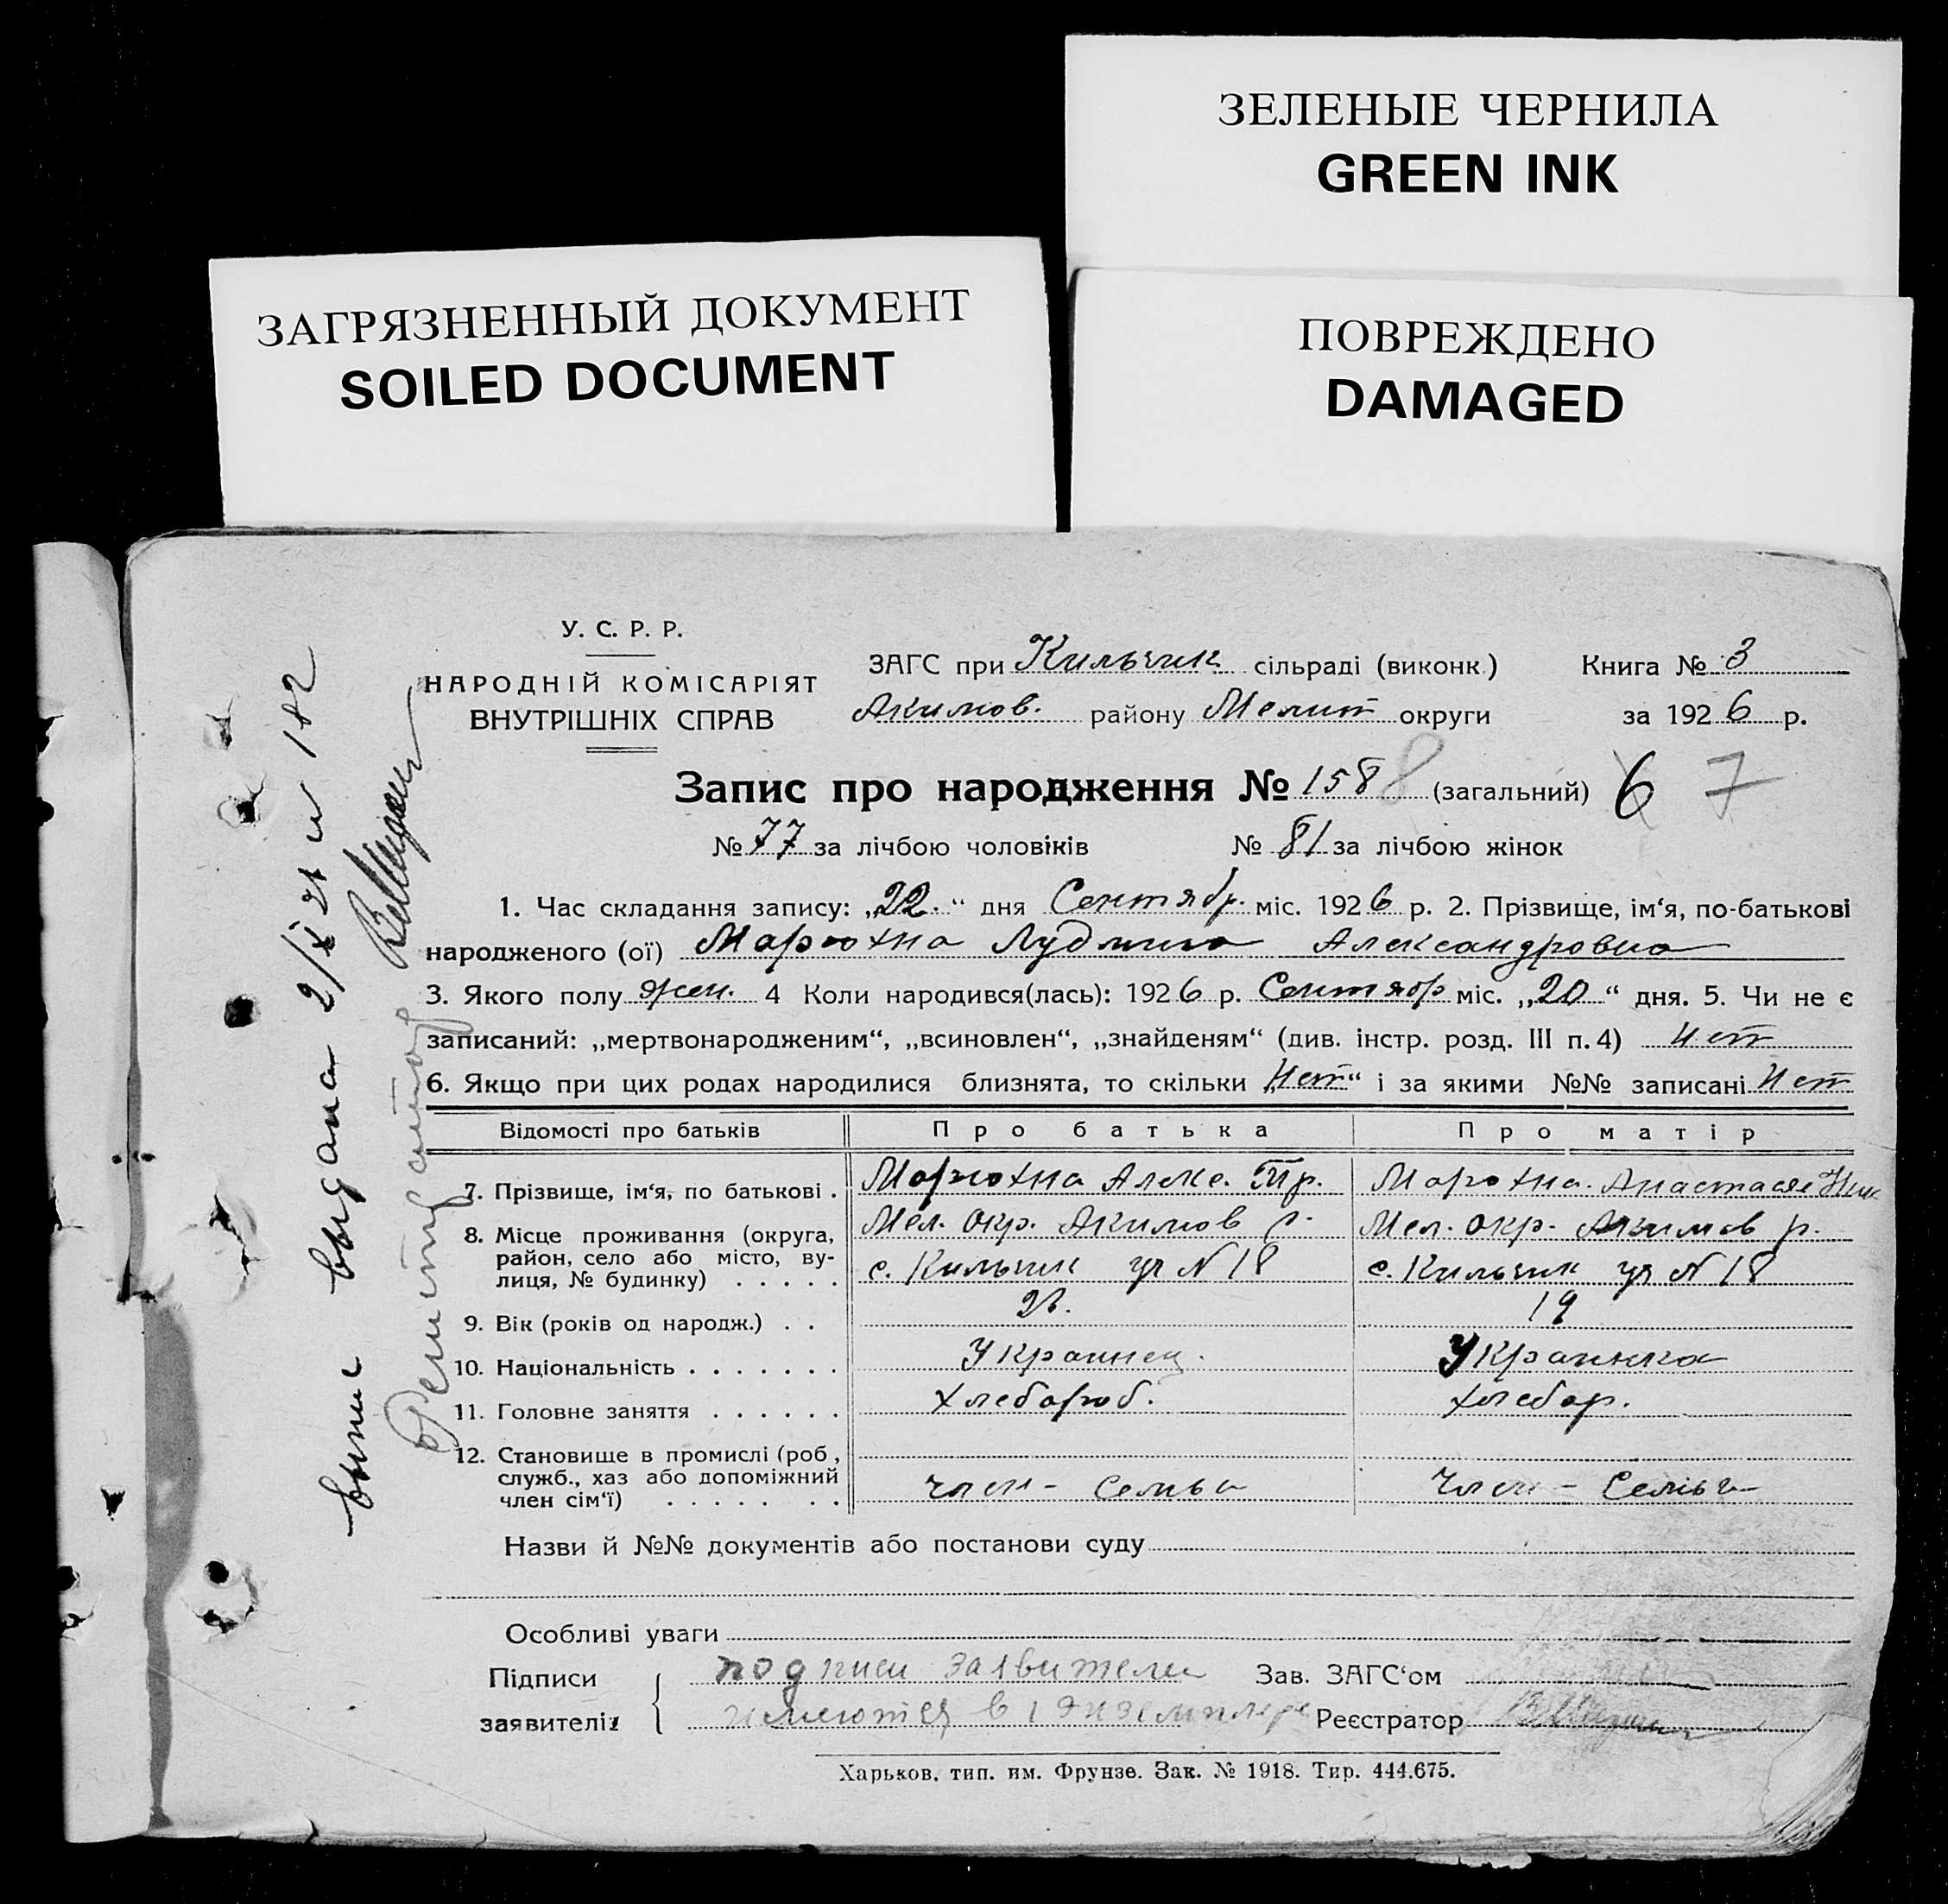 ЗЕЛЕНЫЕ ЧЕРНИЛА
GREEN INK
ЗАГРЯЗНЕННЫЙ ДОКУМЕНТ
SOILED DOCUMENT
ПОВРЕЖДЕНО
DAMAGED
У. С. Р. Р.
НАРОДНІЙ КОМІСАРІЯТ
ВНУТРІШНІХ СПРАВ
ЗАГС при Кильчик сільраді (виконк.)
Акимов. району Мелит округи
Книга № 3
за 1926 р.
Запис про народження № 158 8 (загальний) 6 7
№ 77 за лічбою чоловіків № 81 за лічбою жінок
1. Час складання запису: „22.“ дня Сентябр. міс. 1926 р. 2. Прізвище, ім‘я, по-батькові
народженого (ої) Марюхна Лудмила Александровна
3. Якого полу жен. 4 Коли народився(лась): 1926 р. Сентябр міс. „20“ дня. 5. Чи не є
записаний: „мертвонародженим“, „всиновлен“, „знайденям“ (див. інстр. розд. III п. 4) нет
6. Якщо при цих родах народилися близнята, то скільки „Нет“ і за якими №№ записані Нет
Відомості про батьків Про батька Про матір
7. Прізвище, ім‘я, по батькові . Марюхна Алек. Пр. Марюхна. Анастасия Ник
8. Місце проживання (округа, Мел. Окр. Акимов р. Мел. окр. Акимов р.
район, село або місто, ву-
лиця, № будинку) . . . . . с. Кильчик уч N 18 с. Кильчик уч N 18
9. Вік (років од народж.) . . 19
10. Національність . . . . . . . Украинец. Украинка
11. Головне заняття . . . . . . Хлебороб. Хлебор.
12. Становище в промислі (роб,
служб., хаз або допоміжний
член сім‘ї) . . . . . . . член - Семьи Член - Семьи
Назви й №№ документів або постанови суду
Особливі уваги
Підписи подписи заявители Зав. ЗАГС‘ом
заявителів имеются в 1 экземпляре Реєстратор
Харьков, тип. им. Фрунзе. Зак. № 1918. Тир. 444.675.
выдана
Регистратор